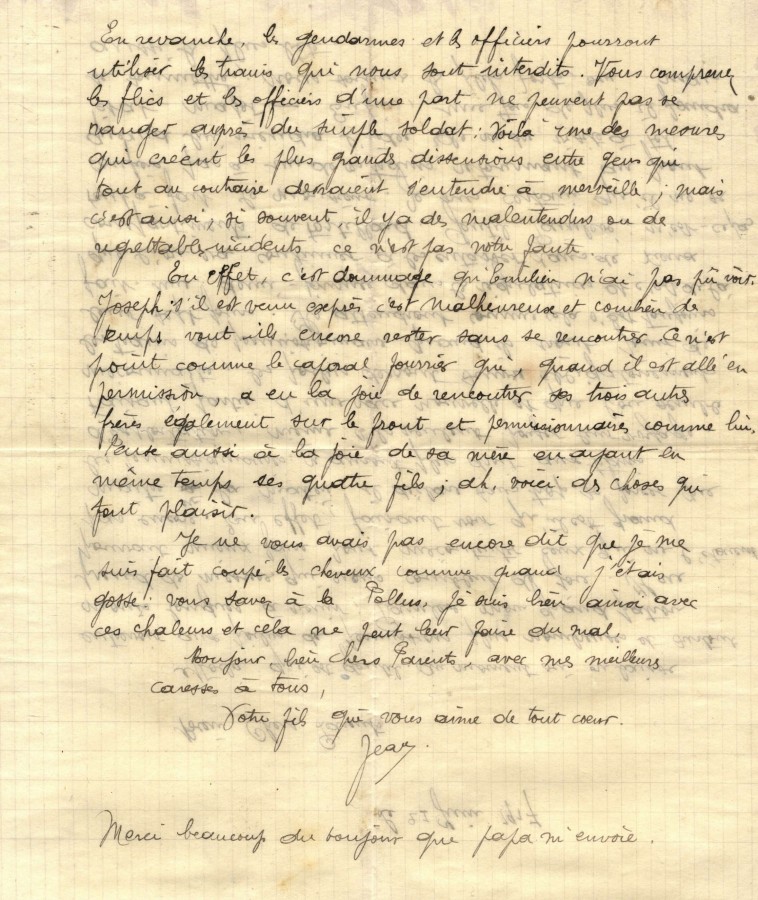 En revanche, les gendarmes et les officiers pourront
utiliser les trains qui nous sont interdits. Vous comprenez
les flics et les officiers d'une part ne peuvent pas se
ranger auprès du simple soldat; voilà une des mesures
qui créent les plus grands dissensions entre gens qui
tout au contraire devraient s'entendre à merveille; mais
c'est ainsi, si souvent, il y a des malentendus ou de
regrettables incidents ce n'est pas notre faute.
En effet, c'est dommage qu'Emilien n'ai pas pû voir
Joseph; s'il est venu exprès c'est malheureux et combien de
temps vont-ils encore rester sans se rencontrer. Ce n'est
point comme le caporal fourrier qui, quand il est allé en
permission, a eu la joie de rencontrer ses trois autres
frères également sur le front et permissionnaires comme lui.
Pense aussi à la joie de sa mère en ayant en
même temps ses quatre fils; ah, voici des choses qui
font plaisir.
Je ne vous avais pas encore dit que je me
suis fait coupé les cheveux comme quand j'étais
gosse: vous savez à la . Je suis bien ainsi avec
ces chaleurs et cela ne peut leur faire du mal.
Bonjour, bien chers Parents, avec mes meilleurs
caresses à tous,
Votre fils qui vous aime de tout coeur.
Jean.
Merci beaucoup du bonjour que papa m'envoie.